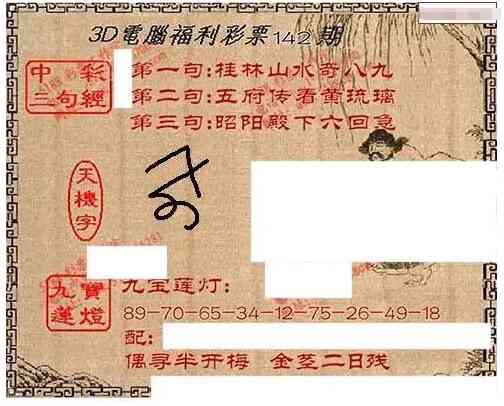 3D電腦福利彩票142期
中彩
三句經
第一句:桂林山水奇八九
第二句:五府传看黄琉璃
第三句:昭阳殿下六回急
天機字
九寶
蓮燈
九宝莲灯:
89-70-65-34-12-75-26-49-18
配:
偶寻半开梅 金茎二日残